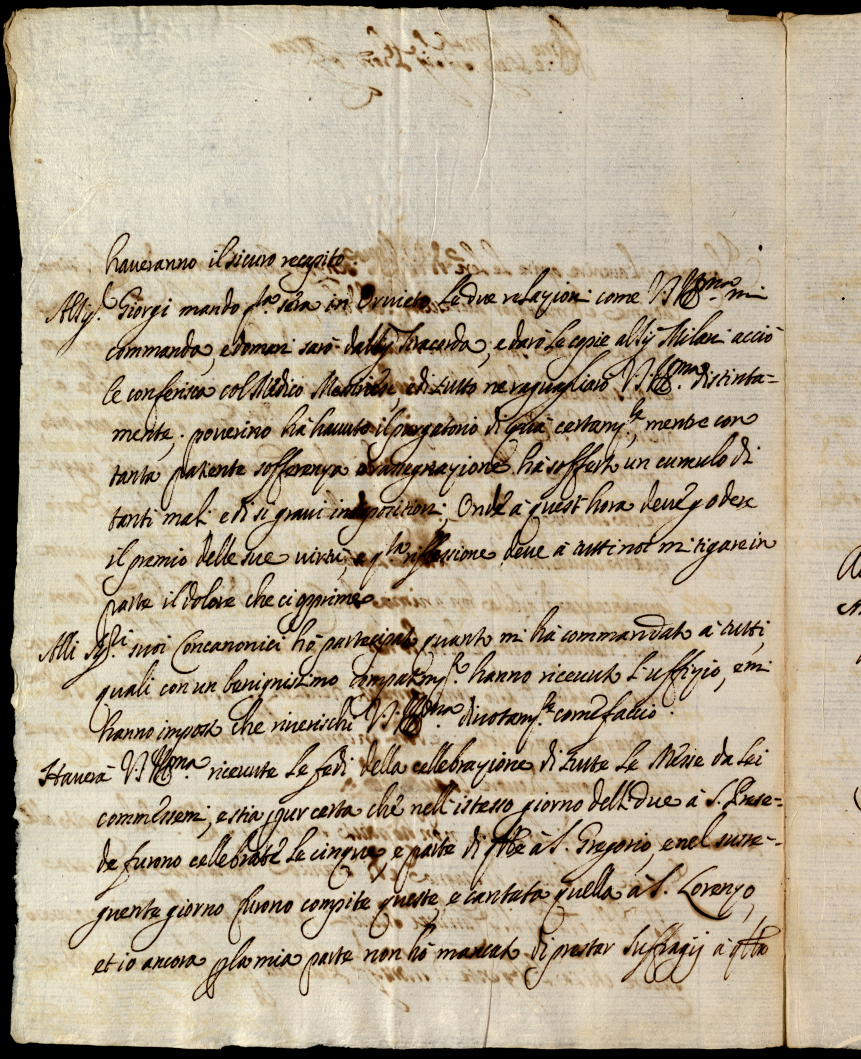 haveranno il sicuro recapito.
Al Sig.r Giorgi mando q.ta sera in Orvieto le due relazioni come V.S. Ill.ma mi
commanda, e domani sarò dal Sig.r e darò le copie al Sig.r Milani acciò
le conferisca col Medico e di tutto ne raguagliarò V.S. Ill.ma distinta=
mente; poverino hà havuto il purgatorio di quà certam.te, mentre con
tanta patiente sofferenza e rassegnazione hà sofferto un cumulo di
tanti mali e di si gravi indisposizioni; Onde à quest'hora deve godere
il premio delle sue virtù, e q.ta riflessione deve à tutti noi mitigare in
parte il dolore che ci opprime.
Alli Sig.ri suoi Concanonici hò partecipato quanto mi hà commandato à tutti,
quali con un benignissimo hanno ricevuto l'uffizio, e mi
hanno imposto che riverischi V.S. Ill.ma divotam.te come faccio.
Haverà V.S. Ill.ma ricevute le fedi della cellebrazione di tutte le Messe da lei
commessemi, e stia pur certa che nell'istesso giorno delli due à S. Prase=
de furono cellebrate le cinque, e parte di q.lle à S. Gregorio, e nel susse=
guente giorno furono compite queste, e cantata quella à S. Lorenzo,
et io ancora p la mia parte non hò mancato di prestar suffragij à q.lla